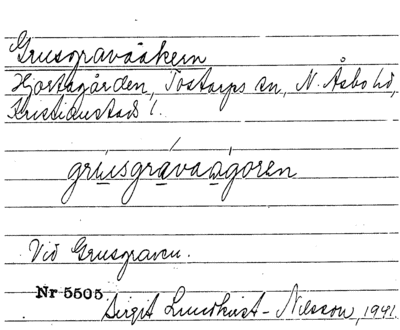 Grusgravaåkern
Hjortagården, Tostarps sn, N. Åsbo hd,
Kristianstads l.
grusgravaågoren
Vid Grusgraven.
Nr 5505
Birgit Lundkvist-Nilsson, 1941.